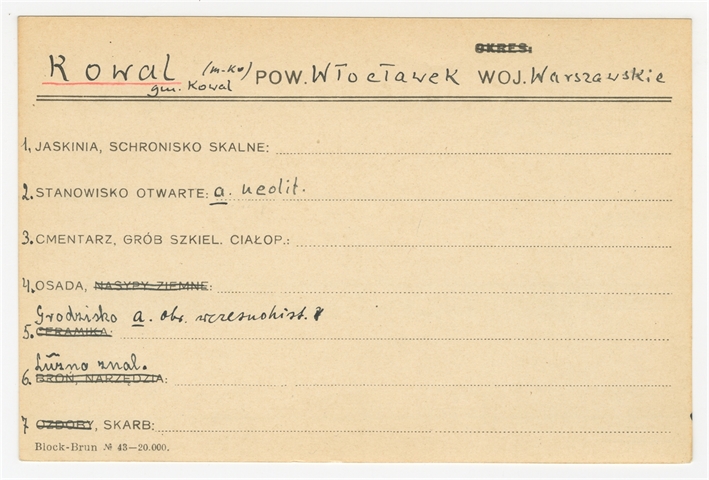 OKRES:
Kowal (m-ko) POW. Włocławek WOJ. Warszawskie
gm. Kowal
1. JASKINIA, SCHRONISKO SKALNE:
2. STANOWISKO OTWARTE: a. neolit.
3. CMENTARZ, GRÓB SZKIEL. CIAŁOP.:
4. OSADA, NASYPY ZIEMNE:
Grodzisko a. okr. wczesnohist.
5. CERAMIKA:
Luźno znal.
6. BROŃ, NARZĘDZIA:
7 OZDOBY, SKARB:
Block-Brun № 43—20.000.